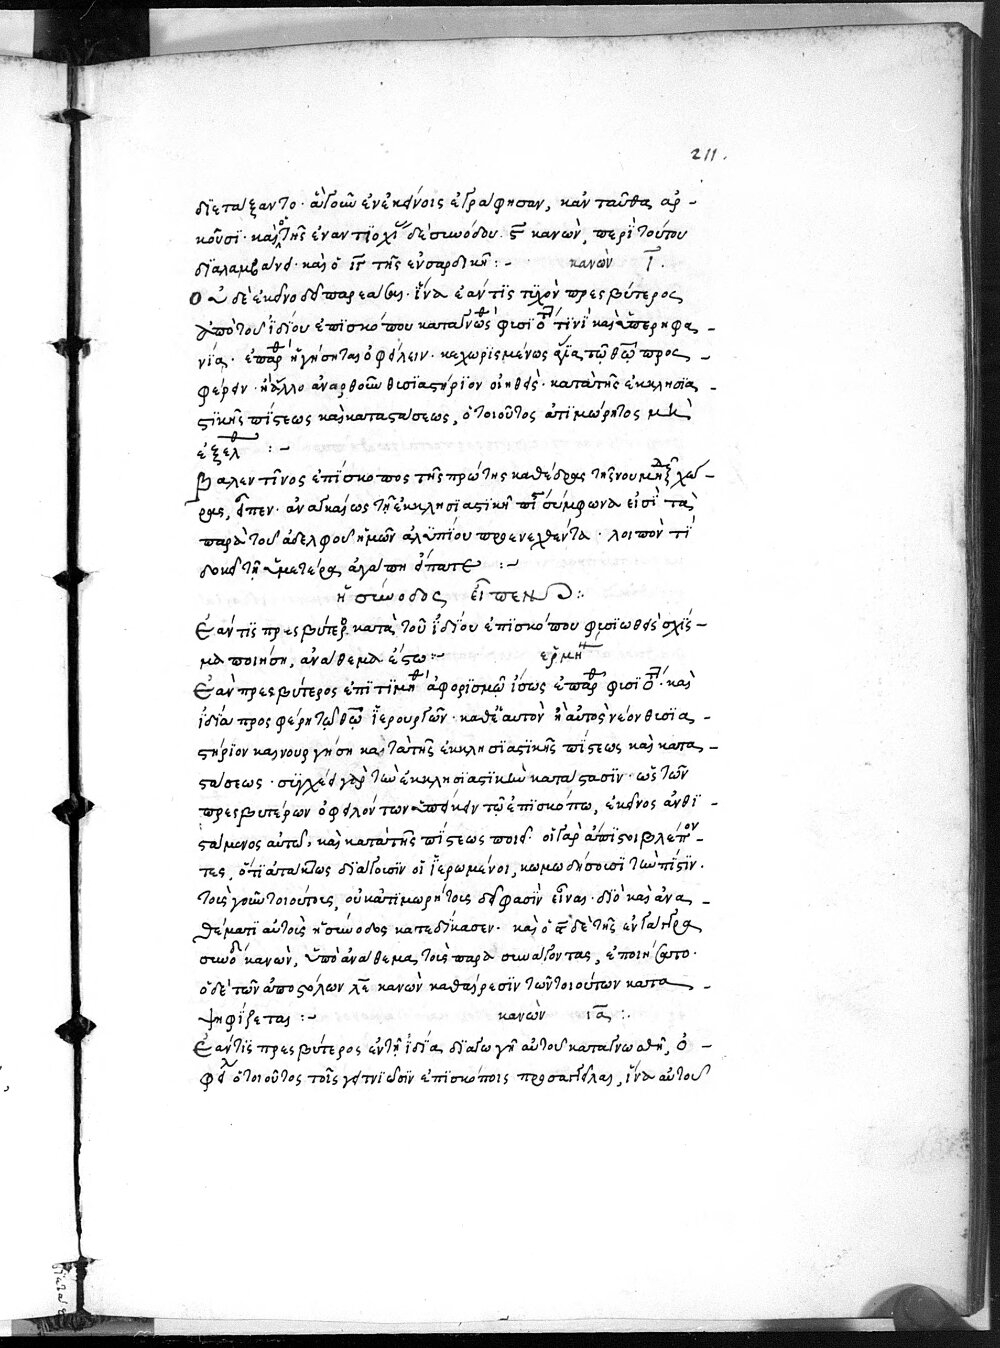 211.
διεταξαντο· ἃ γοῦν ἐν ἐκείνοις ἐγράφησαν, κἀνταῦθα ἀρ-
κοῦσι· καὶ ὁ τῆς ἐν ἀντιοχ δὲ συνόδου ς κανὼν, περὶ τούτου
διαλαμβάνει· καὶ ὁ ιγ τῆς ἐν σαρδικῆ :- κανὼν ι.
Οὐ δὲ ἐκεῖνο δεῖ παρεᾶσαι· ἵνα ἐάν τις τυχὸν πρεσβύτερος
ἀπὸ τοῦ ἰδίου ἐπισκόπου καταγνωσθ φυσι τινὶ καὶ ὑπερηφα-
νία· ἐπαρθ ἡγήσηται ὀφείλειν· κεχωρισμένως ἅγια τῷ θῷ προσ-
φέρειν· ἢ ἄλλο ἀνορθοῦν θυσιαστήριον οἰηθείς· κατὰ τῆς ἐκκλησια-
στικῆς πίστεως καὶ καταστάσεως, ὁ τοιοῦτος ἀτιμώρητος μὴ
ἐξελθ :-
Βαλεντῖνος ἐπίσκοπος τῆς πρώτης καθέδρας τῆς νουμιδ χώ-
ρας, εἶπεν· ἀναγκαίως τῇ ἐκκλησιαστικῇ πιστ σύμφωνα εἰσὶ τὰ
παρὰ τοῦ ἀδελφοῦ ἡμῶν ἀλυπίου προενεχθέντα· λοιπὸν τί
δοκεῖ τῇ ὑμετέρα ἀγάπη εἴπατε :-
ἡ σύνοδος εἶπεν :-
Ἐάν τις πρεσβύτερ κατὰ τοῦ ἰδίου ἐπισκόπου φυσιωθεὶς σχίσ-
μα ποιήση, ἀνάθεμα ἔστω :- ἑρμη
Ἐὰν πρεσβύτερος ἐπιτιμηθ ἀφορισμῷ ἴσως ἐπαρθ φυσι· καὶ
ἰδία προσφέρη τῷ θῷ ἱερουργῶν· καθ' ἑαυτὸν ἢ αὐτὸς νέον θυσια-
στήριον καινουργήση κατὰ τῆς ἐκκλησιαστικῆς πίστεως καὶ κατα-
στάσεως· συγχεῖ γὰρ τὴν ἐκκλησιαστικὴν κατάστασιν· ὡς τῶν
πρεσβυτέρων ὀφειλόντων ὑπείκειν τῷ ἐπισκόπω, ἐκεῖνος ἀνθι-
στάμενος αὐτῷ, καὶ κατὰ τῆς πίστεως ποιεῖ· οἱ γὰρ ἄπιστοι βλέπον-
τες, ὅτι ἀτάκτως διάγουσιν οἱ ἱερωμένοι, κωμωδήσουσι τὴν πίστιν·
τοὺς γοῦν τοιούτους, οὐκ ἀτιμωρήτους δεῖ φασὶν εἶναι· διὸ καὶ ἀνα-
θέματι αὐτοὺς ἡ σύνοδος κατεδίκασεν· καὶ ὁ α δὲ τῆς ἐν γάγγρα
συνόδ κανὼν, ὑπὸ ἀνάθεμα τοὺς παρασυνάγοντας, ἐποιήσατο·
ὁ δὲ τῶν ἀποστόλων λα κανὼν καθαίρεσιν τῶν τοιούτων κατα-
ψηφίζεται :- κανὼν ια :-
Ἐάν τις πρεσβύτερος ἐν τῇ ἰδία διαγωγῇ αὐτοῦ καταγνωσθῆ, ὀ-
φειλ ὁ τοιοῦτος τοῖς γειτνιῶσιν ἐπισκόποις προσαγγεῖλαι, ἵνα αὐτοῦ